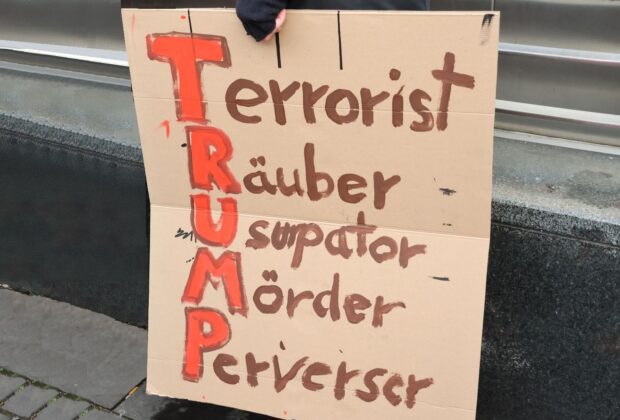 Terrorist
Räuber
Usurpator
Mörder
Perverser